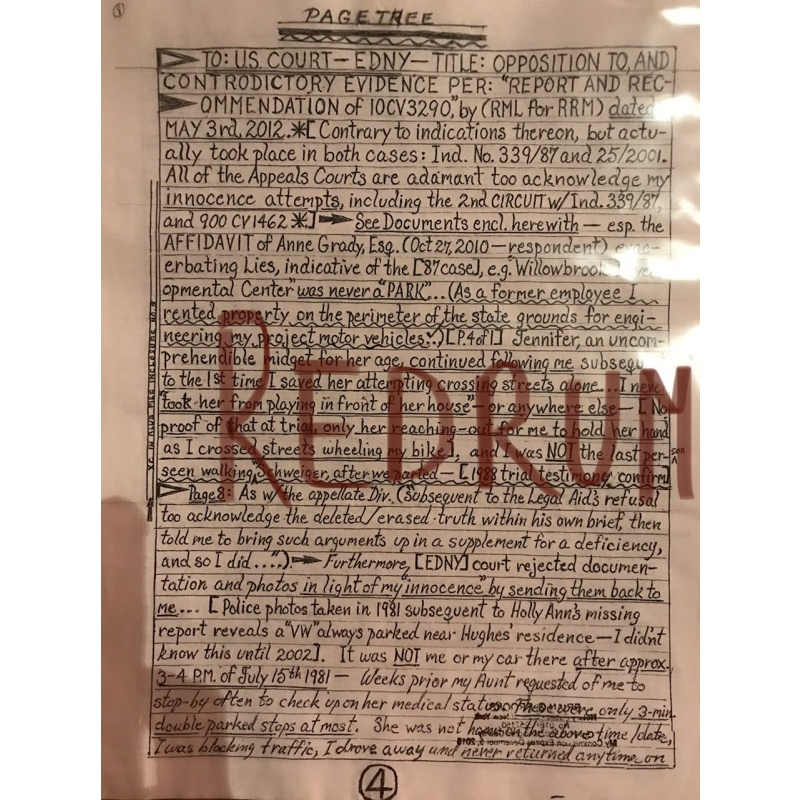 ①
PAGE THREE
TO: U.S. COURT — EDNY — TITLE: OPPOSITION TO, AND
CONTRODICTORY EVIDENCE PER: "REPORT AND REC-
OMMENDATION of 10CV3290," by (RML for RRM) dated
MAY 3rd, 2012. *[ Contrary to indications thereon, but actu-
ally took place in both cases: Ind. No. 339/87 and 25/2001.
All of the Appeals Courts are adamant too acknowledge my
innocence attempts, including the 2nd CIRCUIT w/Ind. 339/87,
and 900 CV1462 *.] See Documents encl. herewith — esp. the
AFFIDAVIT of Anne Grady, Esq. (Oct 27, 2010 — respondent)
erbating Lies, indicative of the ['87 case], e.g. "Willowbrook
opmental Center" was never a "PARK"... (As a former employee I
rented property on the perimeter of the state grounds for engi-
neering my project motor vehicles.) [P.4 of 1] Jennifer, an uncom-
prehendible midget for her age, continued following me subsequ
to the 1st time I saved her attempting crossing streets alone... I never
"took her from playing in front of her house" — or anywhere else — [ No
proof of that at trial, only her reaching-out for me to hold her hand
as I crossed streets wheeling my bike], and I was NOT the last per-
son
seen walking Schweiger, after we parted — [1988 trial testimony confirm
Page 8: As w/ the appellate Div. ("Subsequent to the Legal Aid's refusal
too acknowledge the deleted/erased truth within his own brief, then
told me to bring such arguments up in a supplement for a deficiency,
and so I did....") Furthermore, [EDNY] court rejected documen-
tation and photos in light of my "innocence" by sending them back to
me... [ Police photos taken in 1981 subsequent to Holly Ann's missing
report reveals a "VW" always parked near Hughes' residence — I didn't
know this until 2002]. It was NOT me or my car there after approx.
3-4 P.M. of July 15th 1981 — Weeks prior my Aunt requested of me to
stop-by often to check up on her medical status. These were only 3-min.
double parked stops at most. She was not home on the above time/date,
I was blocking traffic, I drove away and never returned anytime on
REDRUM
④